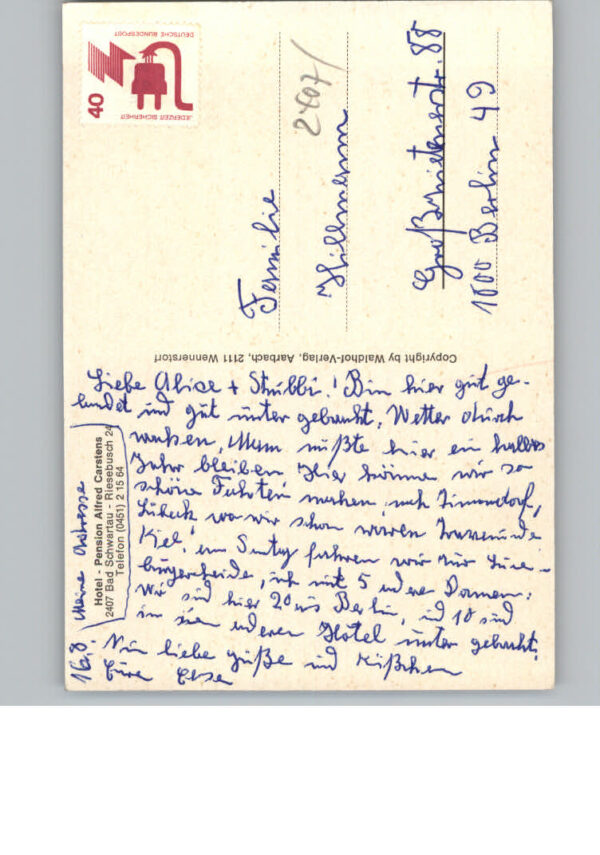 40
DEUTSCHE BUNDESPOST
JEDERZEIT SICHERHEIT
2407/
Familie
Hillmann
Großzietenerstr. 88
1000 Berlin 49
Copyright by Waldhof-Verlag, Aarbach, 2111 Wennerstorf
Liebe Alice + Strubbi! Bin hier gut ge-
landet und gut unter gebracht, Wetter durch
wachsen, Mann müßte hier ein halbes
Jahr bleiben Hier können wir so
schöne Fahrten machen, nach Timmendorf,
Lübeck wo wir schon waren Travemünde
Kiel, am Sontag fahren wir zur Lüne-
burgerheide, ich mit 5 andere Damen.
Wir sind hier 20 aus Berlin, und 10 sind
in ein anderen Hotel unter gebracht.
Nun liebe grüße und Küßchen
Eure Elsa
16.8.
Meine Adresse
Hotel - Pension Alfred Carstens
2407 Bad Schwartau - Riesebusch 24
Telefon (0451) 2 15 64